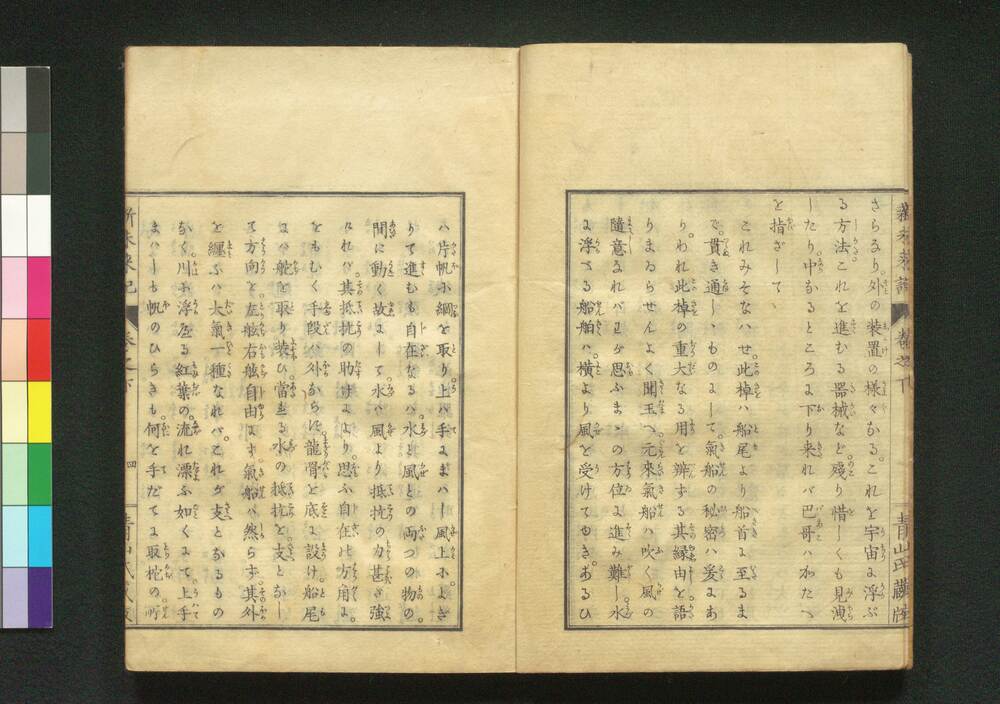 さらなり。外の装置の様々なる。これを宇宙に浮ぶ
る方法これを進むる器械など残り惜しくも見洩
したり。中なるところに下り来れバ巴哥ハかたへ
を指ざして
これみそなハせ。此棹ハ船尾より船首に至るま
で。貫き通しゝものにして氣船の秘密ハ爰にあ
り。われ此棹の重大なる用を辨ずる其縁由を語
りまゐらせんよく聞玉へ元來氣船ハ吹く風の
隨意なれバ我が思ふまゝの方位に進み難し水
に浮べる船舶ハ。横より風を受けてゆき。あるひ
ハ片帆に綱を取り上ハ手にまハし風上に。よぎ
りて進むも自在なるハ水と風との両つの物の
間に動く故にして水ハ風より抵抗の力甚だ強
けれバ其抵抗の助けにより。思ふ自在の方角に
をもむく手段ハ外ならじ龍骨を底に設け。船尾
にハ舵を取り装ひ當る水の抵抗を支となし
て方向を左舷右舷自由にす氣船ハ然らず。其外
を纏ふハ大氣一種なれバこれが支となるもの
なく。川に浮たる紅葉の。流れ漂ふ如くにて。上手
まハしも帆のひらきも。何を手だてに取柁の。所
巻之下
四
青山氏蔵版